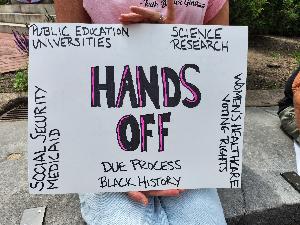 PUBLIC EDUCATION
UNIVERSITIES
SCIENCE
RESEARCH
HANDS
OFF
SOCIAL SECURITY
MEDICAID
WOMEN'S HEALTHCARE
VOTING RIGHTS
DUE PROCESS
BLACK HISTORY